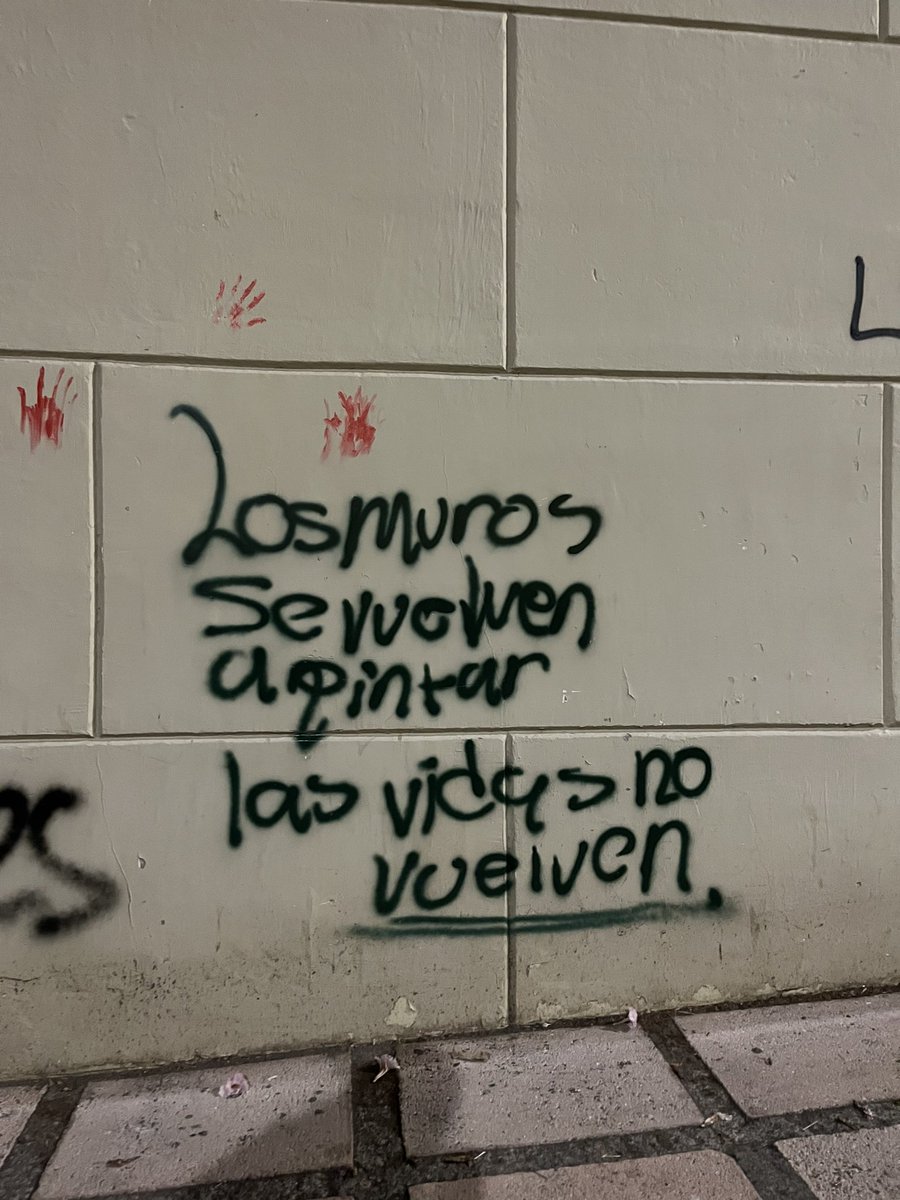 Los muros
se vuelven
a pintar
las vidas no
vuelven.